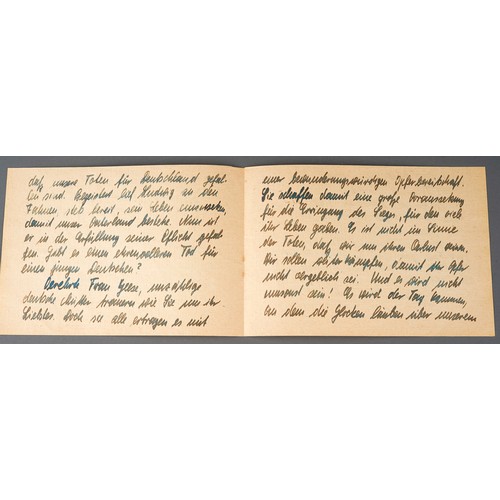 daß unsere Toten für Deutschland gefal-
len sind. Begeistert lief Ludwig zu den
Fahnen, stets bereit, sein Leben einzusetzen,
damit unser Vaterland bestehe. Nun ist
er in der Erfüllung seiner Pflicht gefal-
len. Gibt es einen ehrenvolleren Tod für
einen jungen Deutschen?
Verehrte Frau Geese, unzählige
deutsche Mütter trauern wie Sie um ihr
Liebstes. Doch sie alle ertragen es mit
einer bewunderungswürdigen Opferbereitschaft.
Sie schaffen damit eine große Voraussetzung
für die Erringung des Sieges, für den viele
ihr Leben gaben. Es ist nicht im Sinne
der Toten, daß wir um ihren Verlust
Wir sollen weiterkämpfen, damit ihr Opfer
nicht vergeblich sei. Und es wird nicht
umsonst sein! Es wird der Tag kommen,
an dem die Glocken läuten über unserem